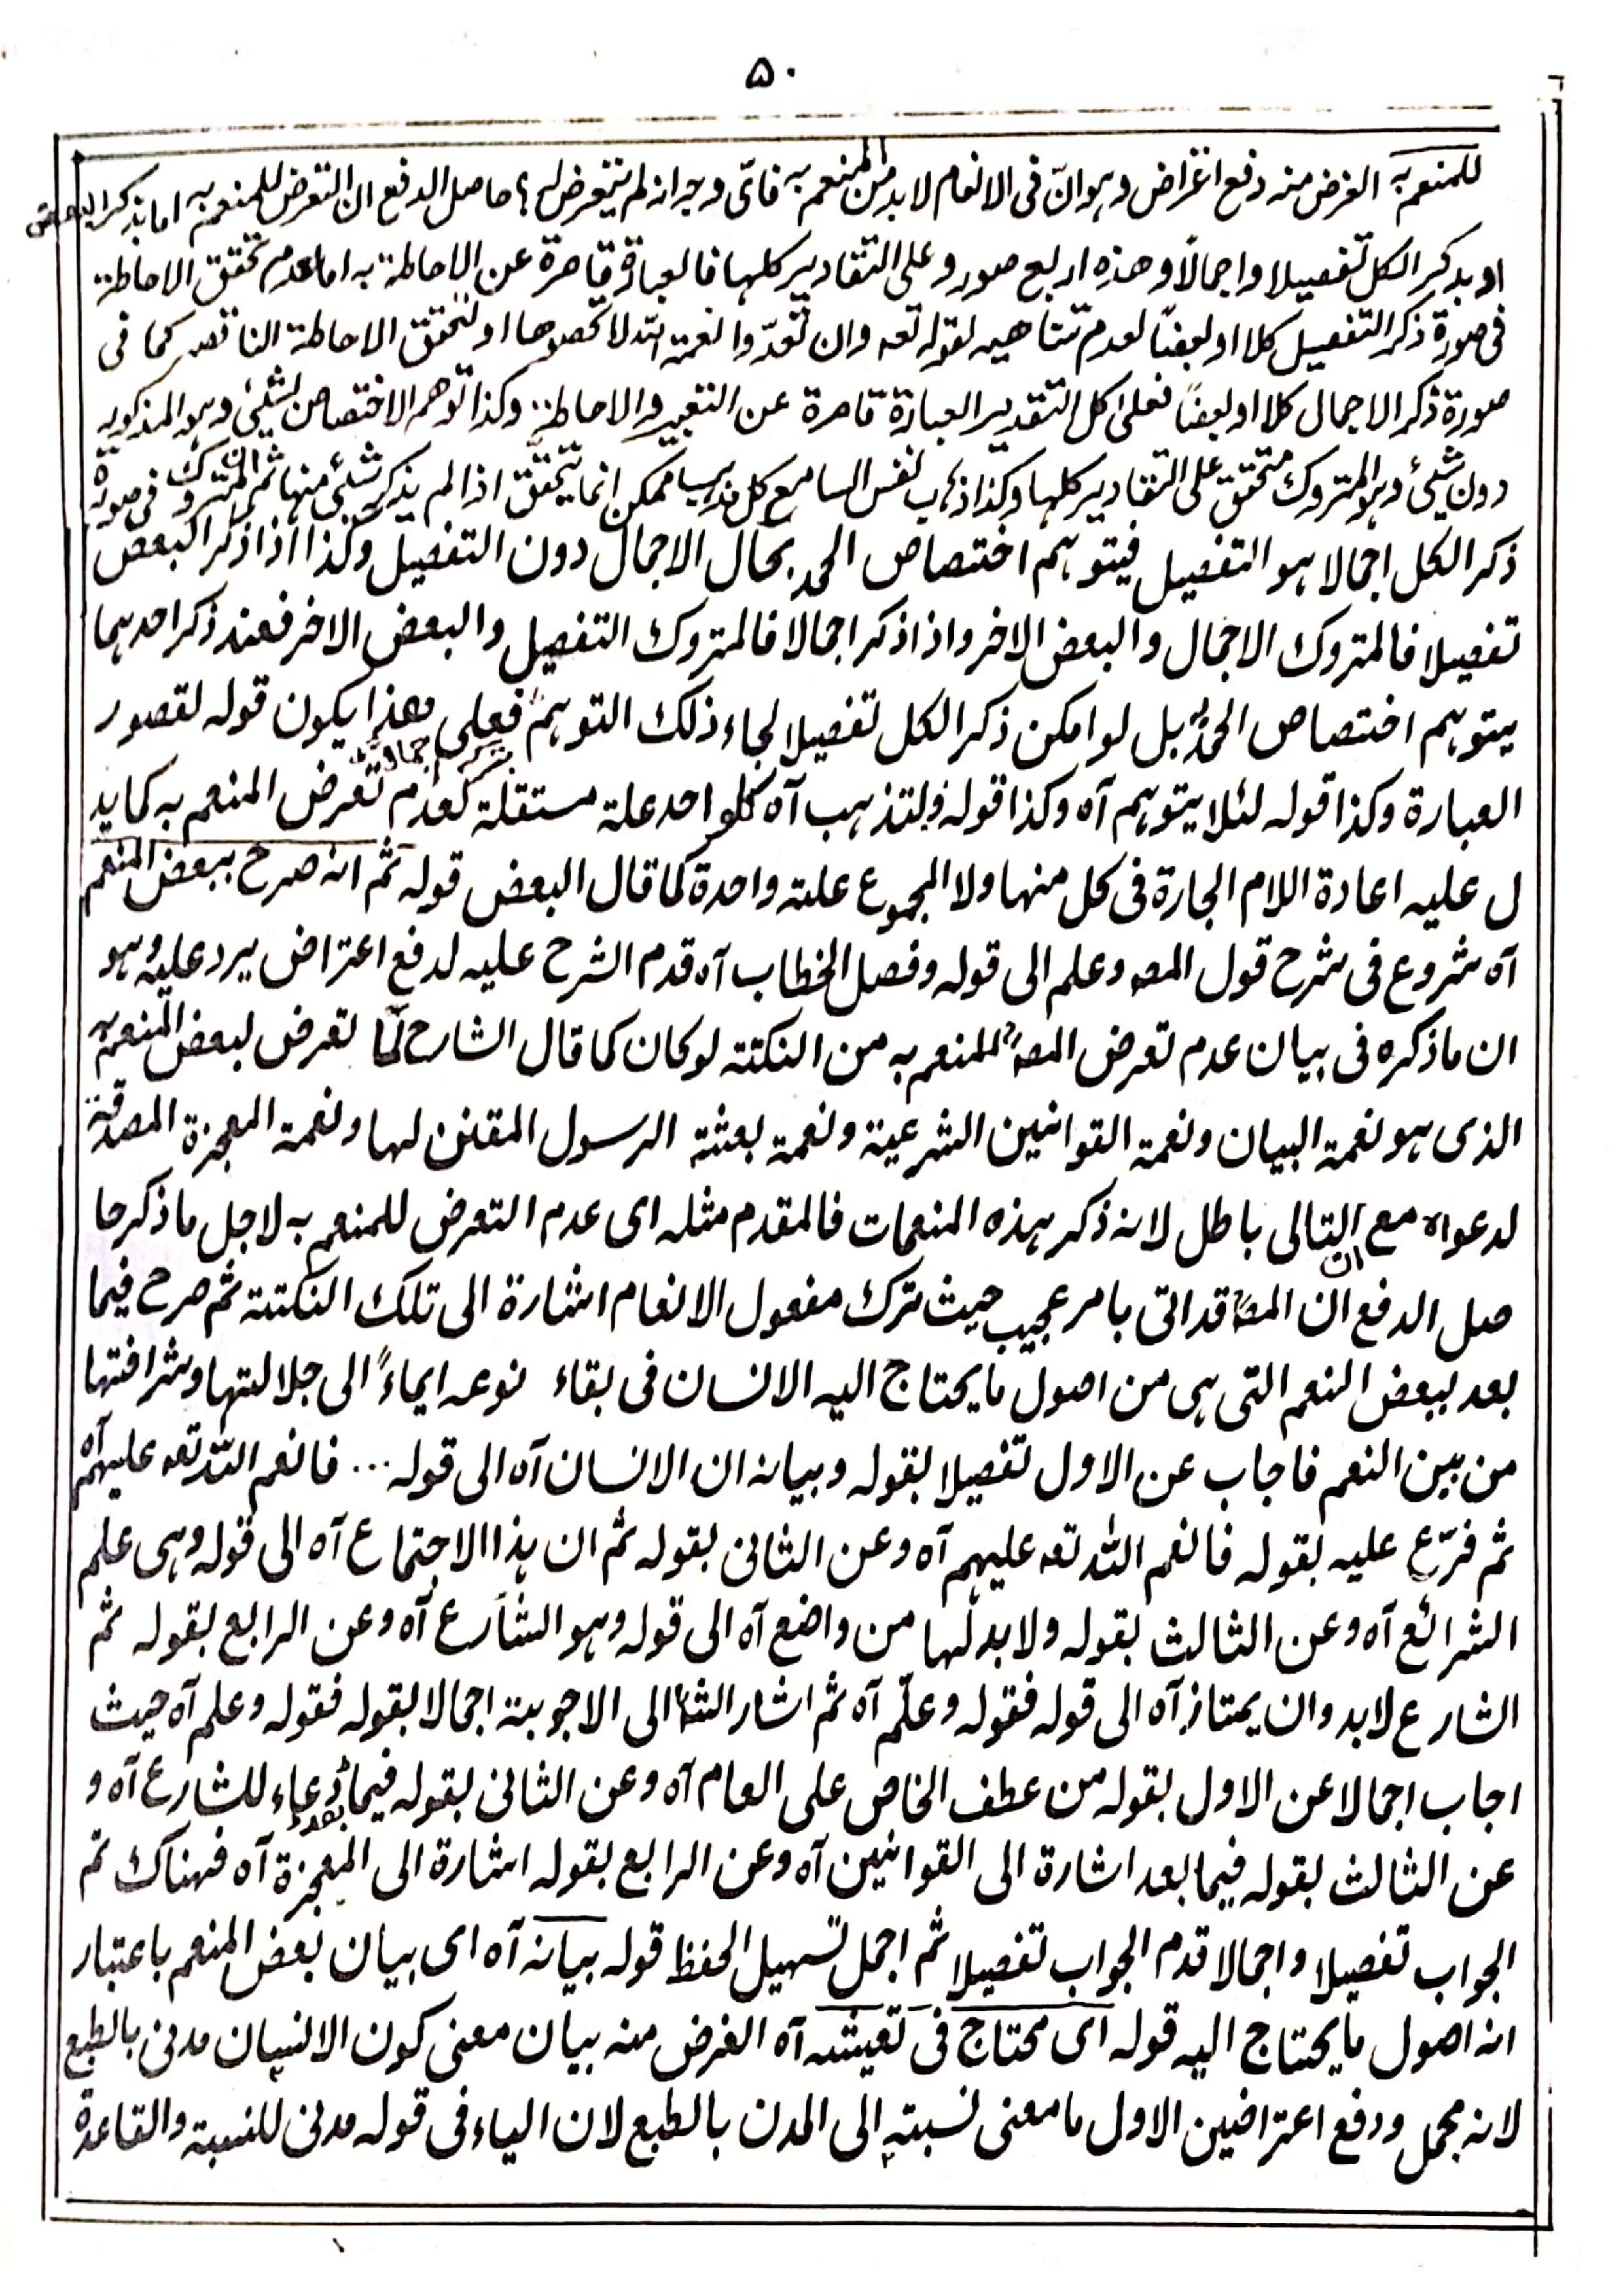 ۵۰
للمنعم به الغرض منه دفع اعتراض وہوانّ فی الانعام لا بد من المنعم به فائّ وجه انه لم یتعرض له؟ حاصل الدفع ان التعرض للمنعم به اما بذکر البعض
او بذکر الکل تفصیلا واجمالًا وهذه اربع صور وعلی التقادیر کلہا فالعبارة قاصرة عن الاحاطة به اما لعدم تحقق الاحاطة
فی صورة ذکر التفصیل کلا او بعضًا لعدم تتاهیه لقوله تعه وان تعدّوا نعمة اللّٰه لا تحصوها او لتحقق الاحاطة الناقصة کما فی
صورة ذکر الاجمال کلا او بعضًا فعلیٰ کل التقدیر العبارة قاصرة عن التعبیر والاحاطة وکذا توهم الاختصاص بشیئ وہو المذکور به
دون شیئ وہو المتروک متحقق علی التقادیر کلہا وکذا ذہاب نفس السامع کل مذہب ممکن انما یتحقق اذا لم یذکر شیئ منہا ثم ان المتروک فی صورة
ذکر الکل اجمالا ہو التفصیل فیتوہم اختصاص الحمد بحال الاجمال دون التفصیل وکذا اذا ذکر البعض
تفصیلا فالمتروک الاجمال والبعض الاخر واذا ذکر اجمالا فالمتروک التفصیل والبعض الاخر فعند ذکر احدہما
یتوہم اختصاص الحمد به بل لو امکن ذکر الکل تفصیلا لجاء ذلک التوہم فعلی هذا یکون قوله لقصور
العبارة وکذا قوله لئلا یتوہم آه وکذا قوله ولتذہب آه کل واحد علة مستقلة لعدم تعرض المنعم به کما ید
ل علیه اعادة اللام الجارة فی کل منہا ولا المجموع علة واحدة کما قال البعض قوله ثم انه صرح ببعض المنعم
آه شروع فی شرح قول المصه وعلم الی قوله وفصل الخطاب آه قدم الشرح علیه لدفع اعتراض یرد علیه وہو
ان ما ذکره فی بیان عدم تعرض المصؒ للمنعم به من النکتة لو کان کما قال الشارح لما تعرض لبعض المنعم به
الذی هو نعمة البیان ونعمة القوانین الشرعیة ونعمة بعثة الرسول المقنن لہا ونعمة المعجزة المصدقة
لدعواه مع ان التالی باطل لانه ذکر ہذه المنعمات فالمقدم مثله ای عدم التعرض للمنعم به لاجل ما ذکر حا
صل الدفع ان المصؒ قد اتی بامر عجیب حیث ترک مفعول الانعام اشارة الی تلک النکتة ثم صرح فیما
بعد ببعض النعم التی ہی من اصول ما یحتاج الیه الانسان فی بقاء نوعه ایماءً الی جلالتہا وشرافتہا
من بین النعم فاجاب عن الاول تفصیلا بقوله وبیانه ان الانسان آه الی قوله ... فانعم اللّٰه تعه علیہم آه
ثم فرّع علیه بقوله فانعم اللّٰه تعه علیہم آه وعن الثانی بقوله ثم ان ہذا الاجتماع آه الی قوله وہی علم
الشرائع آه وعن الثالث بقوله ولا بد لہا من واضع آه الی قوله وہو الشارع آه وعن الرابع بقوله ثم
الشارع لا بد وان یمتاز آه الی قوله فقوله وعلّم آه ثم اشار الشؒ الی الاجوبة اجمالا بقوله فقوله وعلم آه حیث
اجاب اجمالا عن الاول بقوله من عطف الخاص علی العام آه وعن الثانی بقوله فیما بعد دعاء للشارع آه و
عن الثالث بقوله فیما بعد اشارة الی القوانین آه وعن الرابع بقوله اشارة الی المعجزة آه فہناک تم
الجواب تفصیلا واجمالا قدم الجواب تفصیلا ثم اجمل تسہیل الحفظ قوله بیانه آه ای بیان بعض المنعم باعتبار
انه اصول ما یحتاج الیه قوله ای محتاج فی تعیشه آه الغرض منه بیان معنی کون الانسان مدنی بالطبع
لانه مجمل ودفع اعتراضین الاول ما معنی نسبته الی المدن بالطبع لان الیاء فی قوله مدنی للنسبة والقاعدة